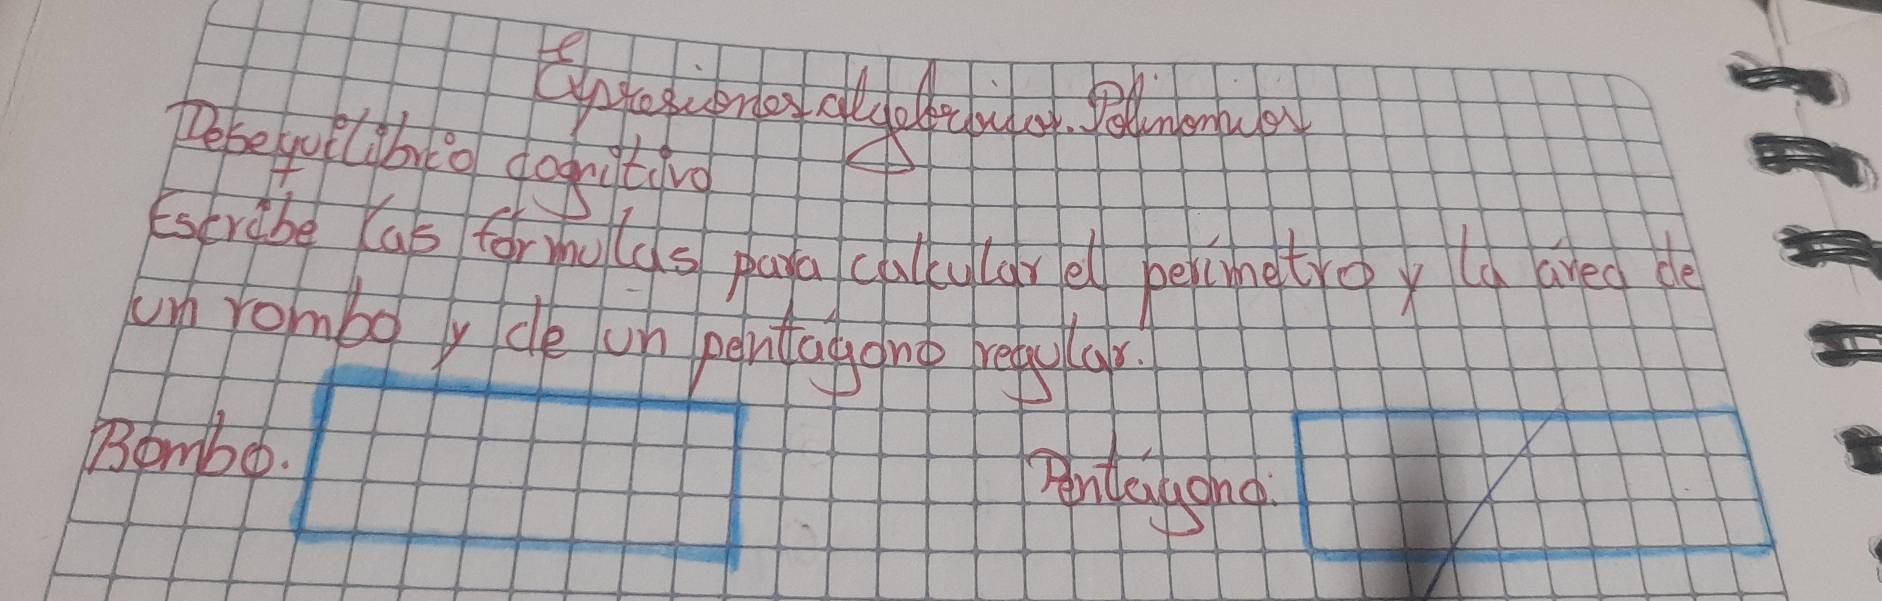 Expresiones algebraicas. Polinomios
Desequilibrio cognitivo
Escribe las formulas para calcular el perímetro y la área de
un rombo y de un pentágono regular.
Rombo.
Pentágono: